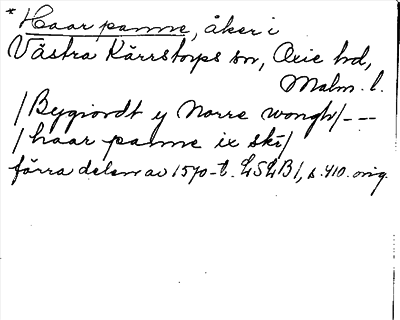 * Haar panne, åker i
Västra Kärrstorps sn, Oxie hd,
Malm. l.
/Bygiordt y Norre wongh/---
/haar panne ix ski/
förra delen av 1570-t. LSLB1, s. 410. orig.